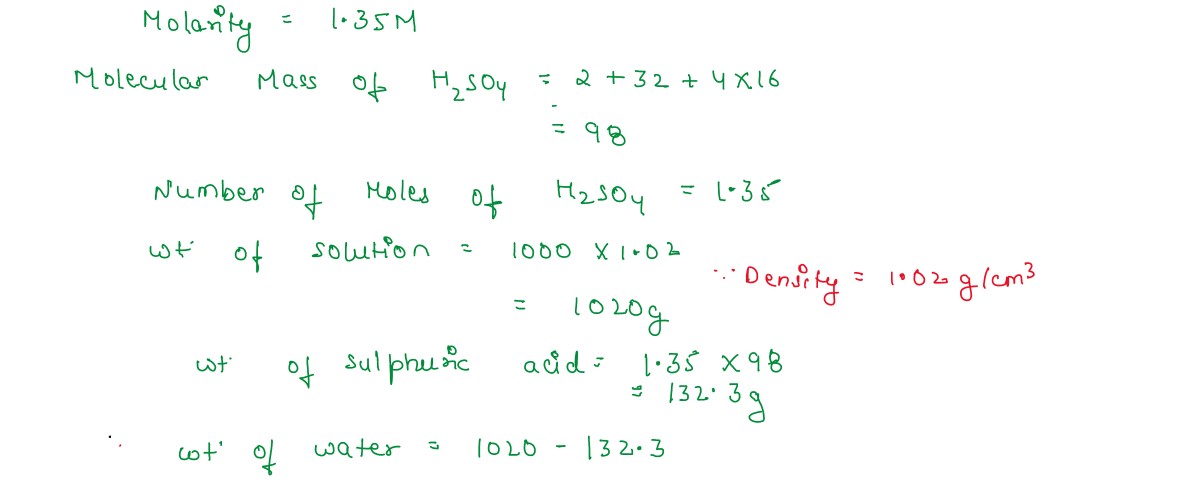 Molarity = 1.35M
Molecular Mass of H₂SO₄ = 2 + 32 + 4×16
= 98
Number of Moles of H₂SO₄ = 1.35
wt. of solution = 1000 × 1.02
∵ Density = 1.02 g/cm³
= 1020g
wt. of sulphuric acid = 1.35 × 98
= 132.3g
∴ wt. of water = 1020 - 132.3